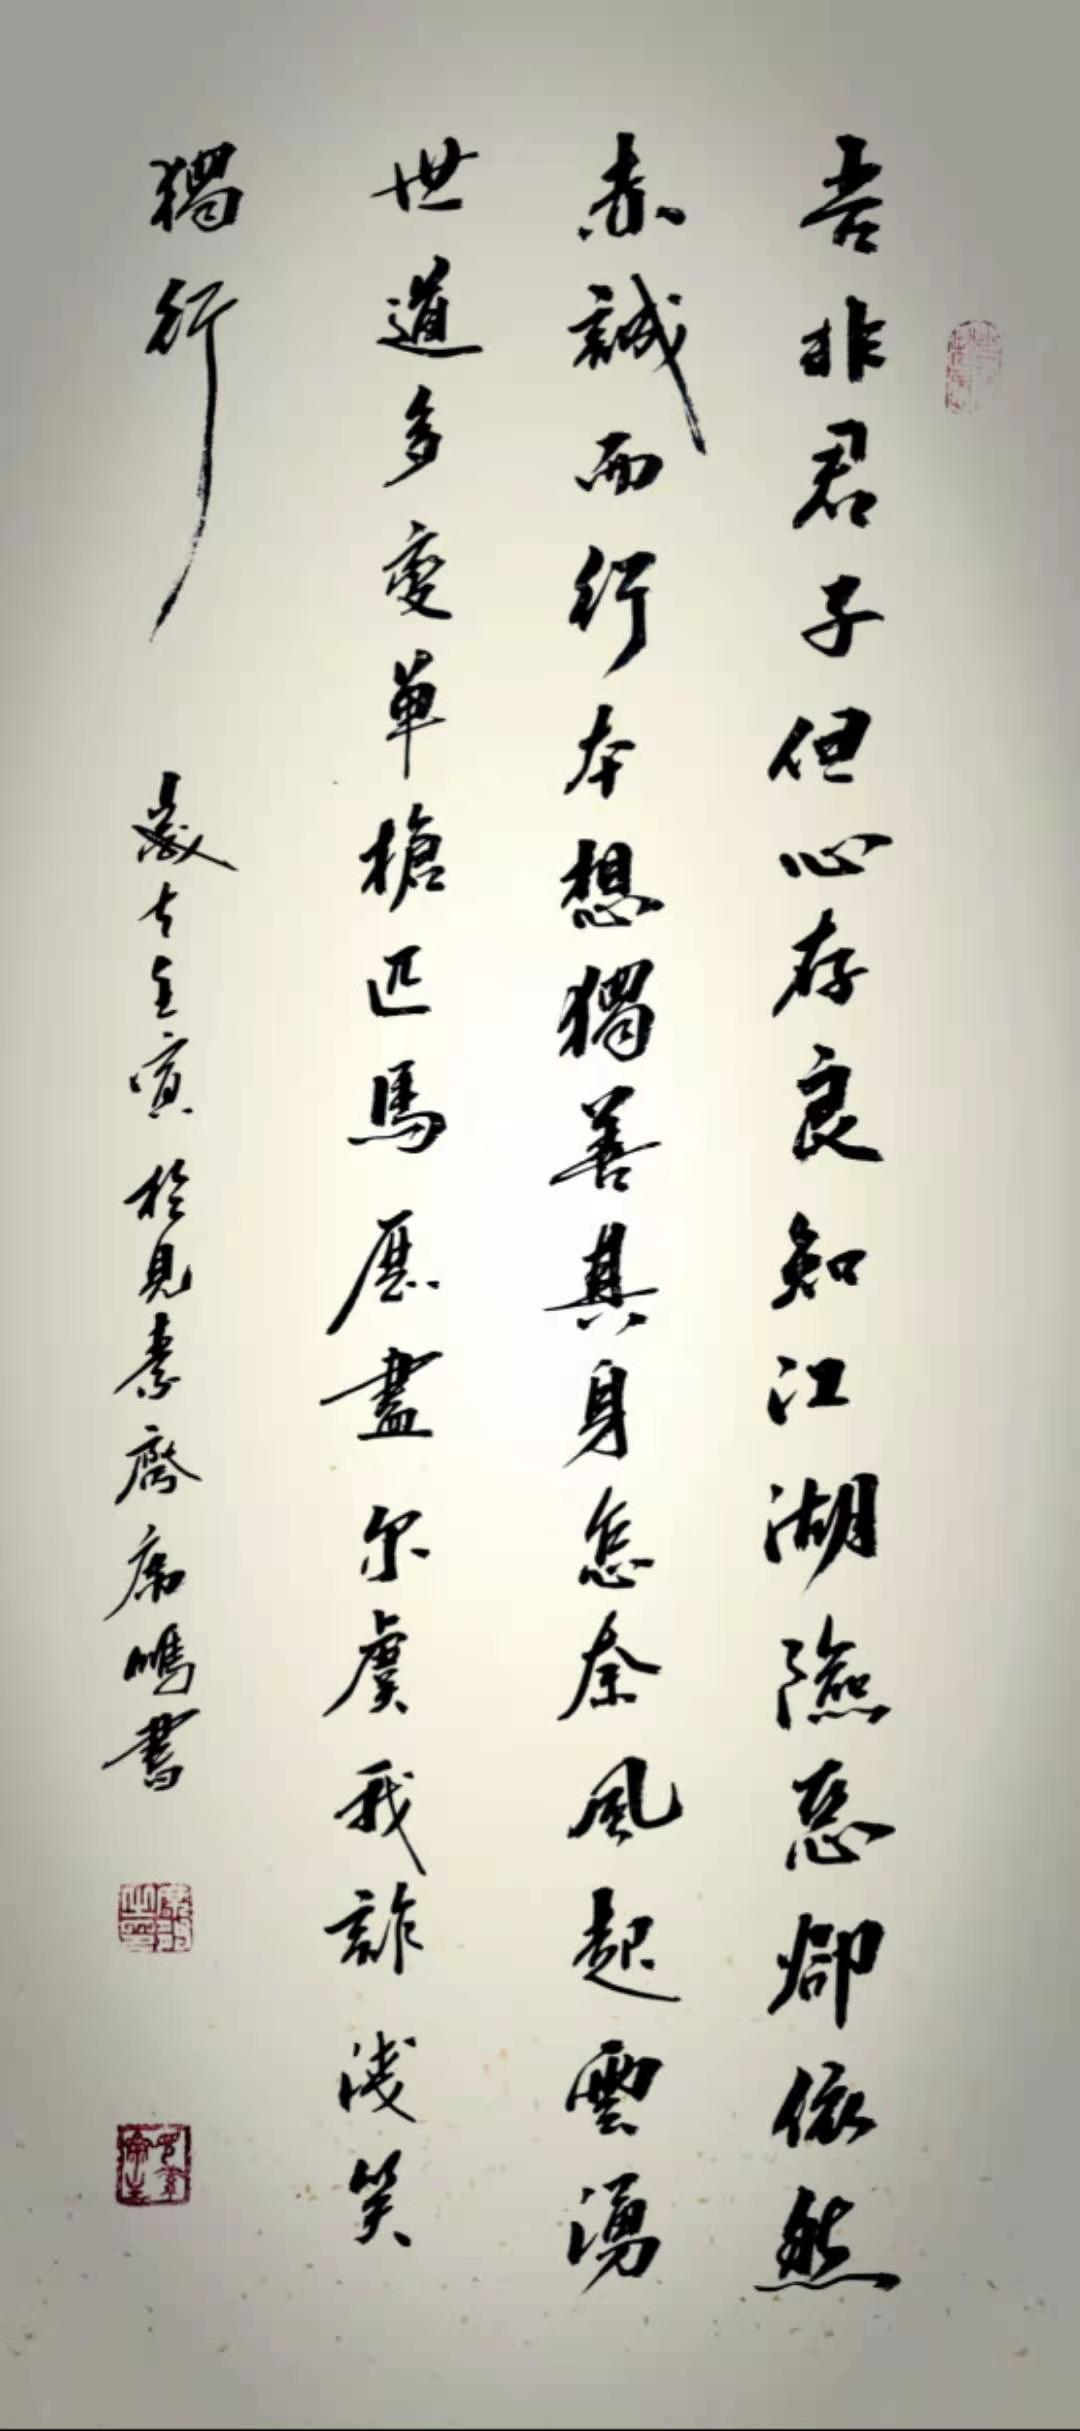 吾非君子但心存良知江湖險惡卻依然
赤誠而行本想獨善其身怎奈風起雲湧
世道多變單槍匹馬歷盡尔虞我詐淺笑
獨行
歲壬寅於見素齋書